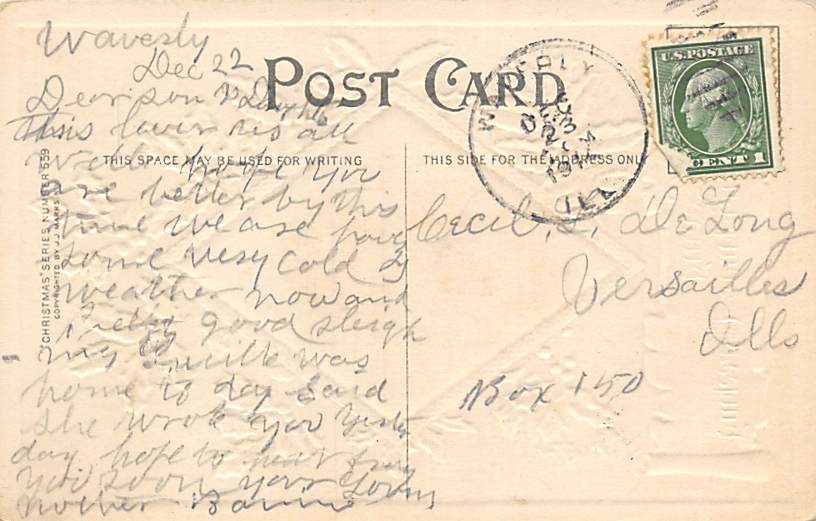 Waverly
Dec 22
POST CARD
Dear son &
this leaves us all
Well hope you
are better by this
time we are having
some very cold
weather now and
Pretty good sleigh
ing Lucille was
home to day Said
she wrote you yester
day hope to hear from
you soon your loving
mother
THIS SPACE MAY BE USED FOR WRITING
THIS SIDE FOR THE ADDRESS ONLY
"CHRISTMAS" SERIES NUMBER 559
COPYRIGHTED BY J.J. MARKS
WAVERLY
DEC
23
U.S. POSTAGE
CENT 1
Cecil. L. DeLong
Versailles
Ills
Box 150